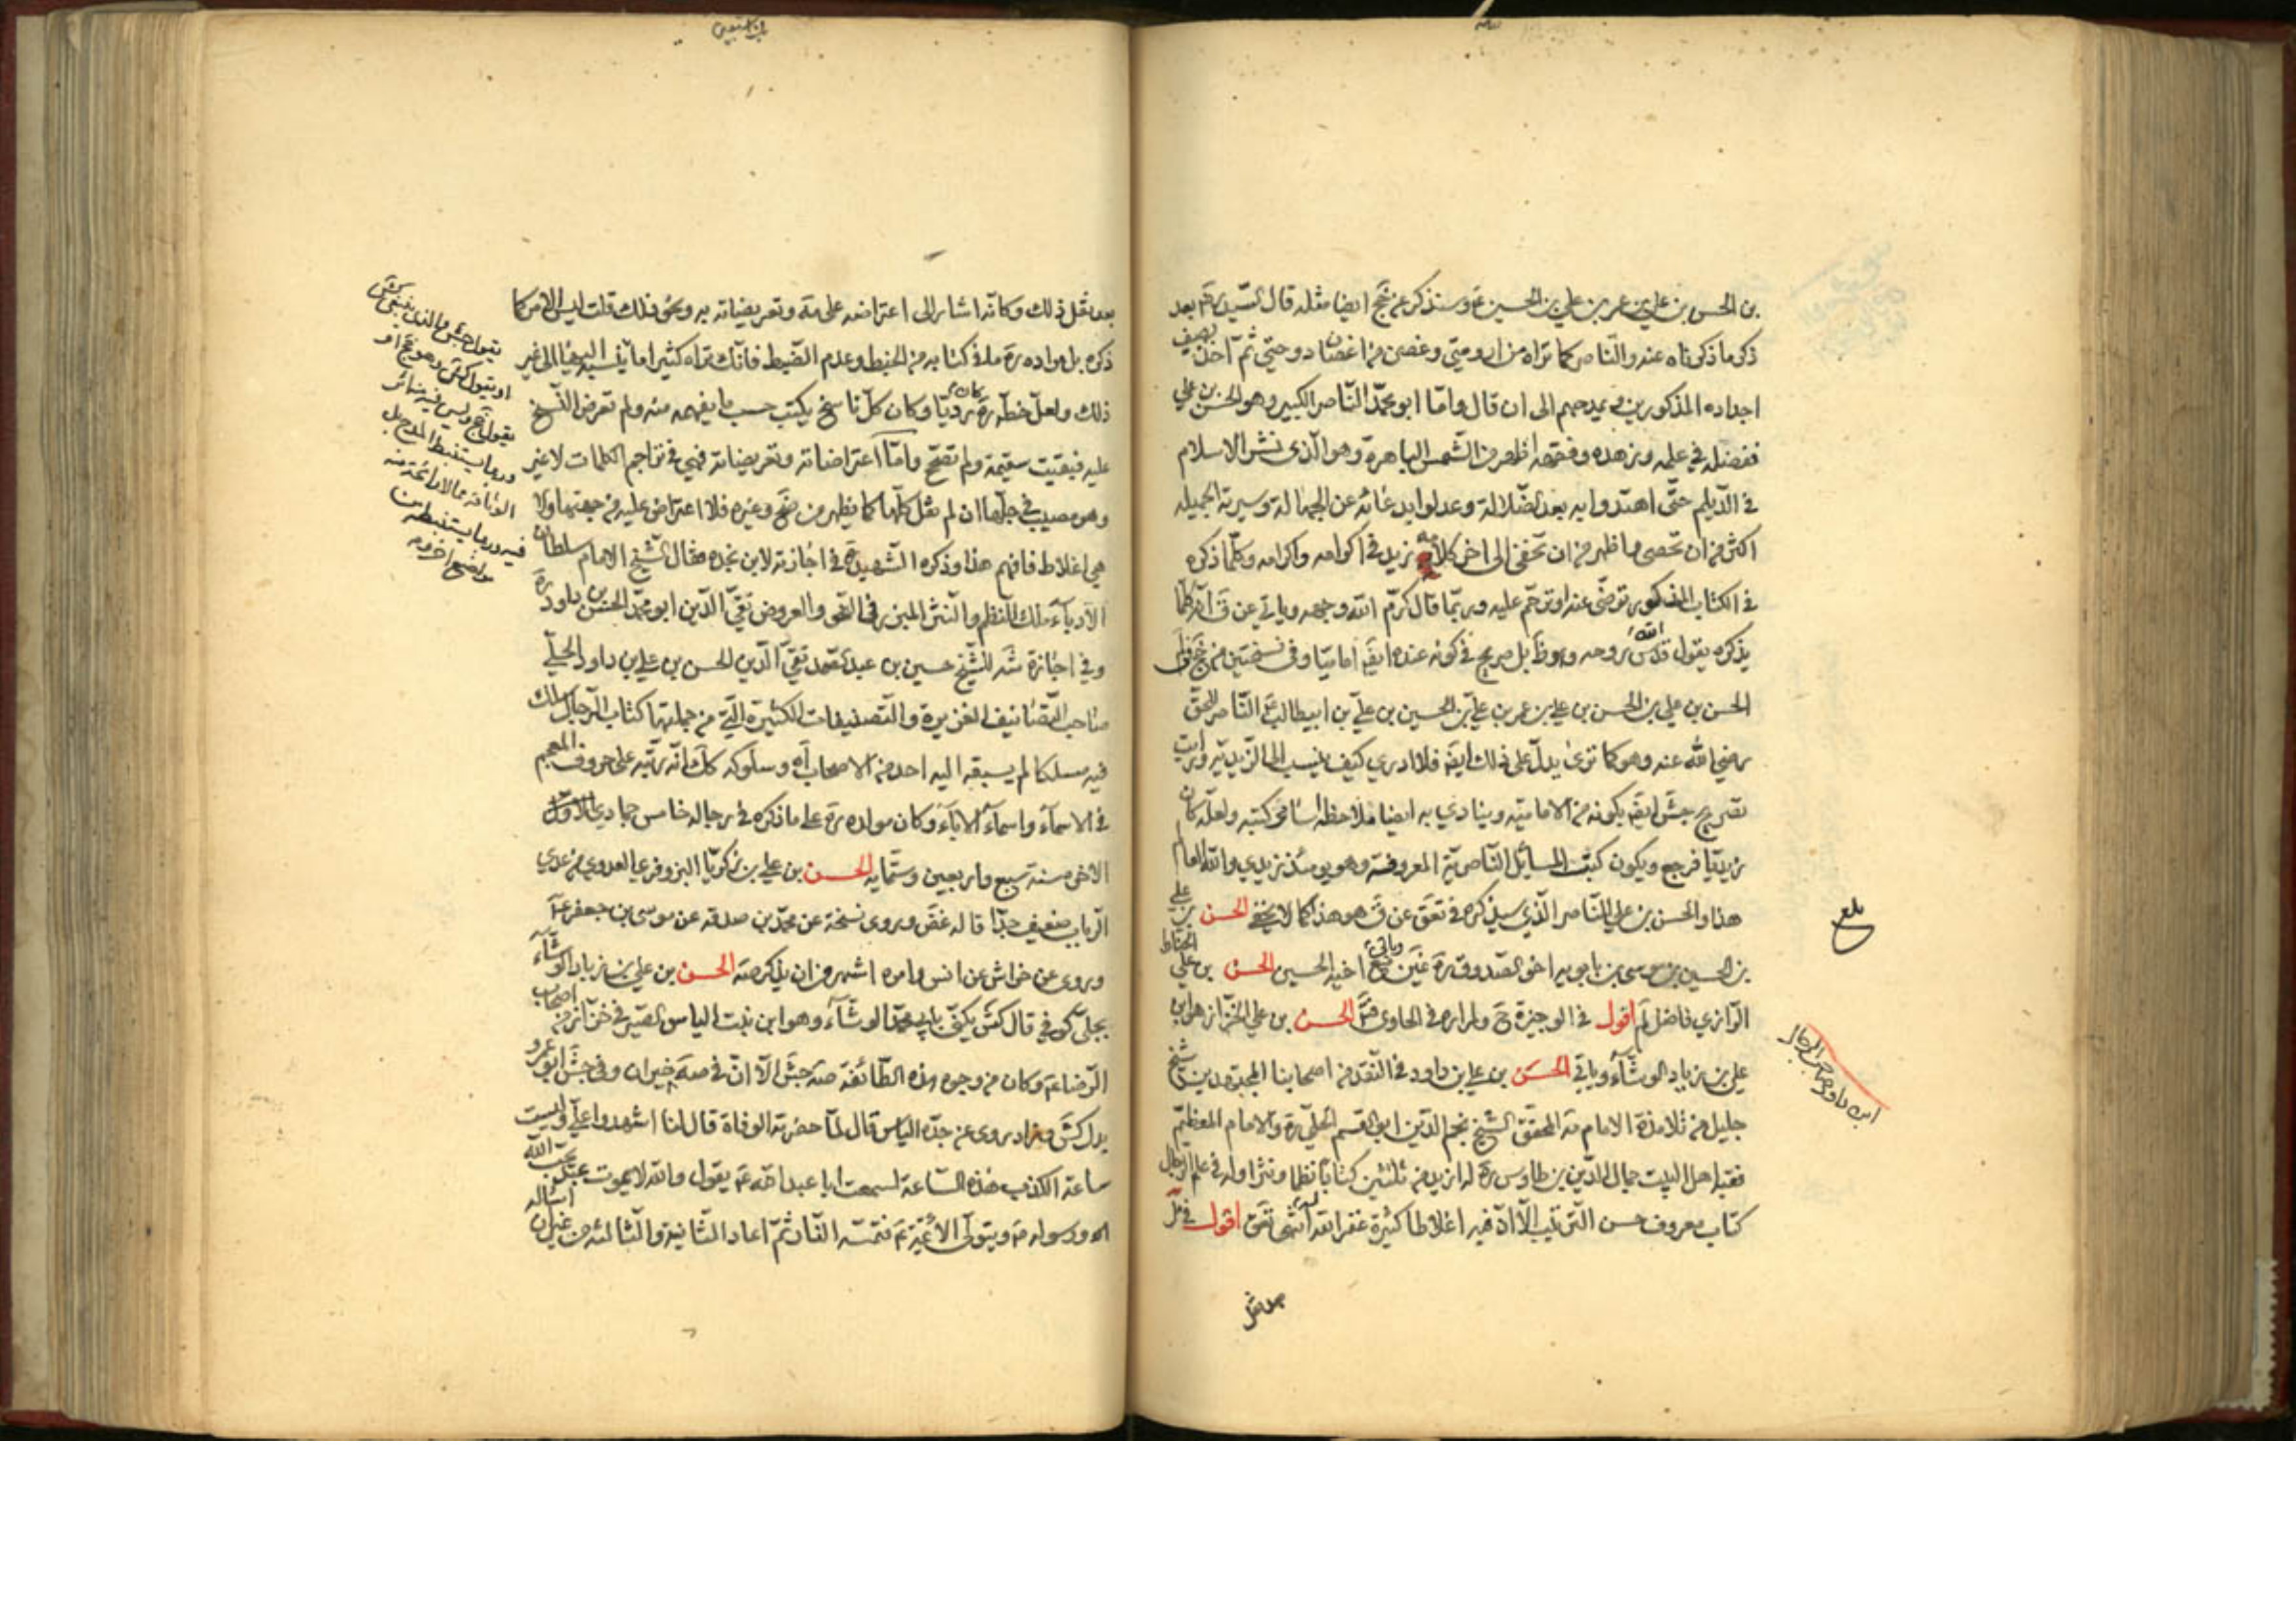 بن الحسن بن علي بن عمر بن علي بن الحسين ع وسنذكر عن جخ ايضا مثله قال السيد ره بعد
ذكر ما ذكرناه عنه والناصر كما تراه من ارومتي وغصن من اغصان دوحتي ثم اخذ يصف
اجداده المذكورين ويمدحهم الى ان قال واما ابو محمد الناصر الكبير وهو الحسن بن علي
ففضله في علمه وزهده وفقهه اظهر من الشمس الباهرة وهو الذي نشر الاسلام
في الديلم حتى اهتدوا به بعد الضلالة وعدلوا بدعائه عن الجهالة وسيرته الجميله
اكثر من ان تحصى واظهر من ان تخفى الى اخر كلامه يزيد في اكرامه واكرامه وكلما ذكره
في الكتاب المذكور ترضى عنه او ترحم عليه وربما قال كرم الله وجهه وياتي عن ق انه كلما
يذكره يقول قدس الله روحه وهو ظ بل صريح في كونه عنده ايض اماميا وفي نسختين من جخ
الحسن بن علي بن الحسن بن علي بن عمر بن علي بن الحسين بن علي بن ابيطالب ع الناصر للحق
رضي الله عنه وهو كما ترى يدل على ذلك ايض فلا ادري كيف ينسب الى الزيديه ورايت
تصريح جش ايض بكونه من الاماميه وينادي به ايضا ملاحظه اسامي كتبه ولعله كان
زيديا فرجع ويكون كتب المسائل الناصرية المعروفة وهو يومئذ زيدي والله العالم
هذا والحسن بن علي الناصر الذي سيذكره في تعق عن ق هو هذا كما لا يخفى الحسن بن علي
بن الحسين بن موسى بن بابويه اخو الصدوق ره وياتي مع اخيه الحسين الحسن بن علي الحناط
الرازي فاضل لم اقول في الوجيزة ح ولم اره في الحاوي الحسن بن علي الخزاز هو ابن
علي بن زياد الوشاء وياتي الحسن بن علي بن داود في النقد من اصحابنا المجتهدين شيخ
جليل من تلامذة الامام مه المحقق الشيخ نجم الدين ابي القسم الحلي ره والامام المعظم
فقيه اهل البيت جمال الدين بن طاوس ره له ازيد من ثلثين كتابا نظما ونثرا وله في علم الرجال
كتاب معروف حسن الترتيب الا ان فيه اغلاطا كثيرة غفر الله له انتهى تعق اقول في مل
بعد نقل
بلغ
ابن داود صاحب الرجال
بعد نقل ذلك وكانه اشار الى اعتراضه على مه وتعريضاته به ونحو ذلك قلت ليس الامر كما
ذكره بل مراده ره ما في كتابه من الخبط وعدم الضبط فانك تراه كثيرا ما
ذلك ولعل خطه ره كان رديا وكان كل ناسخ يكتب حسب ما يفهمه منه ولم تعرض النسخ
عليه فبقيت سقيمة ولم تصحح واما اعتراضاته وتعريضاته فهي في تراجم الكلمات لا غير
وهو مصيب في جلها ان لم نقل كلها كما يظهر من ضح وغيره فلا اعتراض عليه من جهتها ولا
هي اغلاط فافهم هذا وذكره الشهيد ره في اجازته لابن نجده فقال الشيخ الامام سلطان
الادباء ملك النظم والنثر المبرز في النحو والعروض تقي الدين ابو محمد الحسن بن داود ره
وفي اجازة شه للشيخ حسين بن عبد الصمد تقي الدين الحسن بن علي بن داود الحلي
صاحب التصانيف الغزيرة والتصنيفات الكثيرة التي من جملتها كتاب الرجال سلك
فيه مسلكا لم يسبقه اليه احد من الاصحاب اه وسلوكه كك انه رتبه على حروف المعجم
في الاسماء واسماء الاباء وكان مولده ره على ما ذكره في رجاله خامس جمادي
الاخر سنة سبع واربعين وستمايه الحسن بن علي بن زكريا البزوفري العدوي من عدي
الرباب ضعيف جدا قاله غض وروى نسخة عن محمد بن صدقه عن موسى بن جعفر ع
وروى عن خراش عن انس وامره اشهر من ان يذكر صه الحسن بن علي بن زياد الوشاء
بجلي كوفي قال كش يكنى بابي محمد الوشاء وهو ابن بنت الياس الصيرفي خزاز من اصحاب
الرضا ع وكان من وجوه هذه الطائفة صه جش الا ان في صه خيران وفي جش ابو عمرو
بدل كش وزاد روى عن جده الياس قال لما حضرته الوفاة قال لنا اشهدوا علي وليست
ساعة الكذب هذه الساعة لسمعت ابا عبد الله ع يقول والله لا يموت عبد يحب الله
ورسوله ص ويتولى الائمة ع فتمسه النار ثم اعاد الثانية والثالثة من غير ان اساله